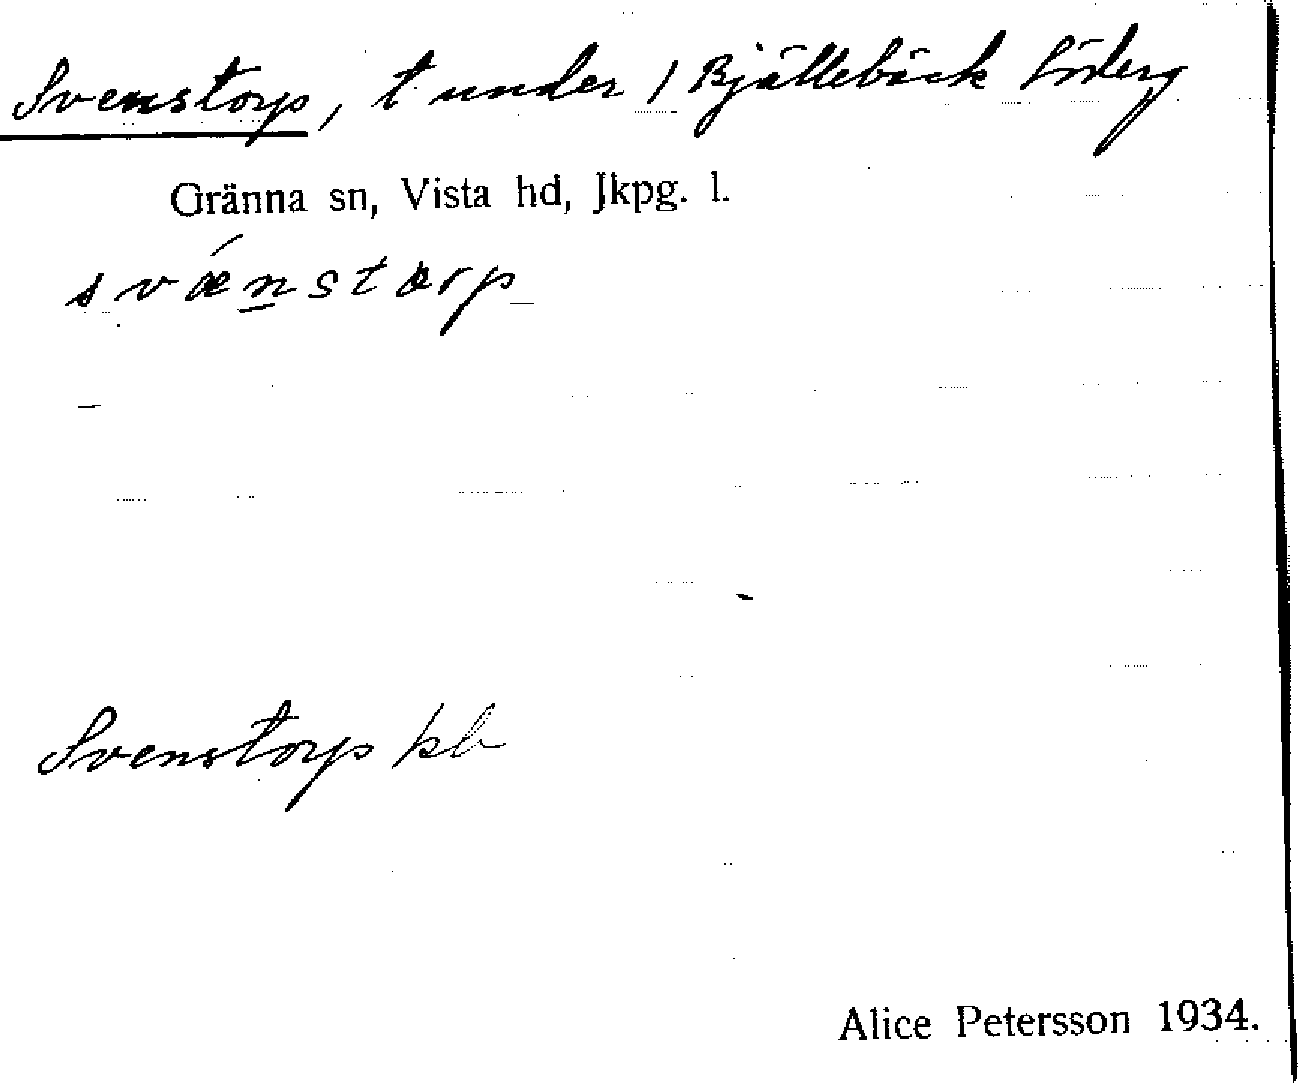 Svenstorp, t under 1 Bjällebäck Söderg
Gränna sn, Vista hd, Jkpg. l.
svǽnstorp
Svenstorp kb
Alice Petersson 1934.